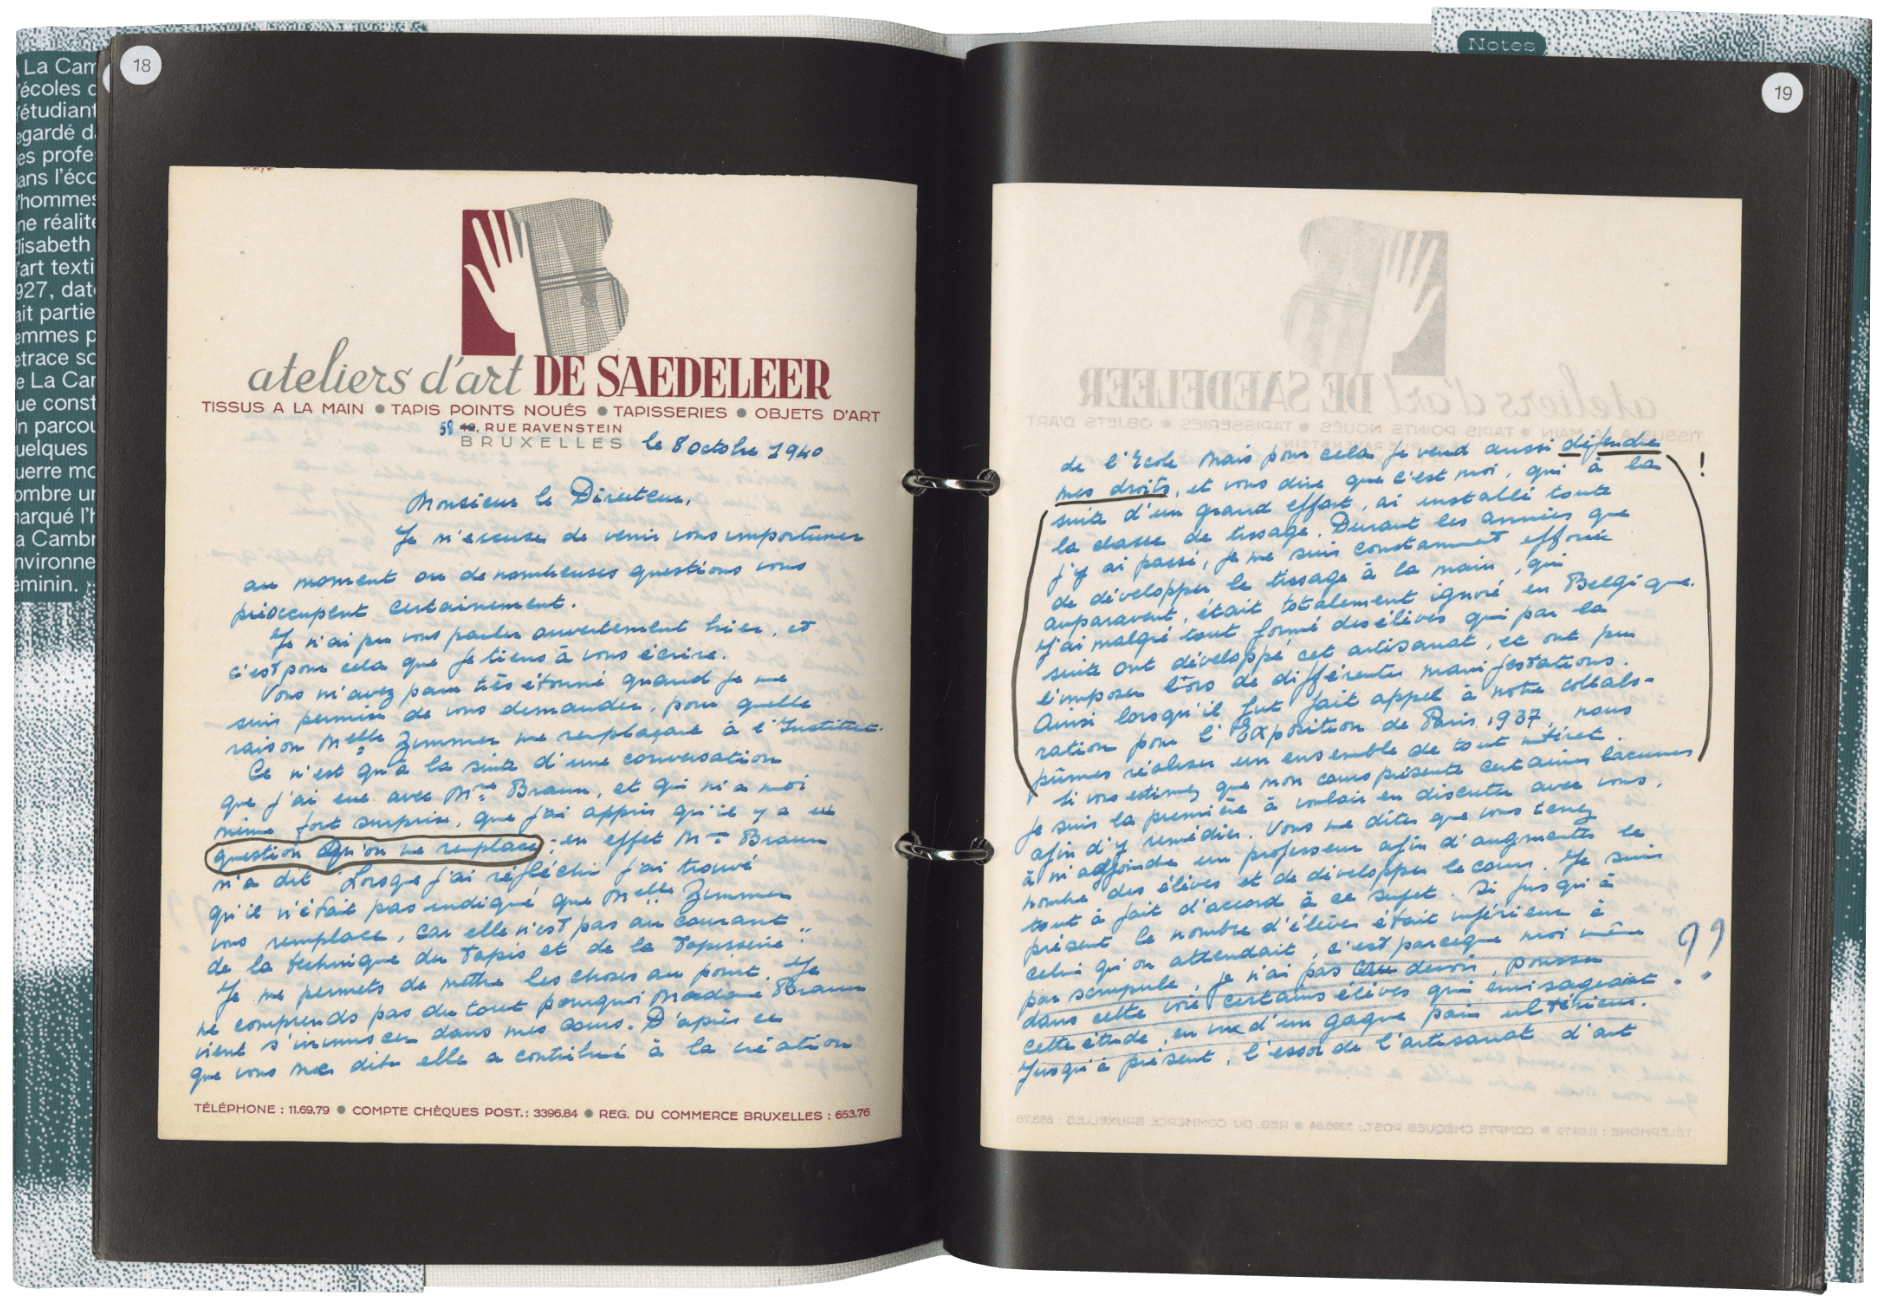 La Cam
'écoles d
'étudiant
egardé d
es profe
ans l'éco
'hommes
ne réalité
Elisabeth
'art texti
927, dat
ait partie
emmes p
etrace so
e La Car
ue const
In parcou
uelques
uerre mo
ombre un
arqué l'h
a Cambr
nvironne
éminin.
18
ateliers d'art DE SAEDELEER
TISSUS A LA MAIN ● TAPIS POINTS NOUÉS ● TAPISSERIES ● OBJETS D'ART
58, RUE RAVENSTEIN
BRUXELLES le 8 octobre 1940
Monsieur le Directeur,
Je m'excuse de venir vous importuner
au moment ou de nombreuses questions vous
préoccupent certainement.
Je n'ai pu vous parler ouvertement hier, et
c'est pour cela que je tiens à vous écrire.
Vous m'avez paru très étonné quand je me
suis permise de vous demander, pour quelle
raison Melle Zimmer me remplaçait à l'Institut.
Ce n'est qu'à la suite d'une conversation
que j'ai eue avec Mme Braun, et qui m'a moi
même fort surprise, que j'ai appris qu'il y a eu
question qu'on me remplace; en effet Mme Braun
m'a dit "Lorsque j'ai réfléchi j'ai trouvé
qu'il n'était pas indiqué que Melle Zimmer
vous remplace, car elle n'est pas au courant
de la technique du Tapis et de la Tapisserie".
Je me permets de mettre les choses au point. Je
ne comprends pas du tout pourquoi Madame Braun
vient s'immiscer dans mes cours. D'après ce
que vous me dites elle a contribué à la création
TÉLÉPHONE : 11.69.79 ● COMPTE CHÈQUES POST. : 3396.84 ● REG. DU COMMERCE BRUXELLES : 653.76
Notes
19
de l'Ecole mais pour cela je veud aussi défendre
mes droits, et vous dire que c'est moi, qui à la !
suite d'un grand effort, ai installé toute
la classe de tissage. Durant les années que
j'y ai passé, je me suis constamment efforcée
de développer le tissage à la main, qui
auparavent, était totalement ignoré en Belgique.
J'ai malgré tout formé des élèves qui par la
suite ont développé cet artisanat, et ont pu
l'imposer lors de différentes manifestations.
Ainsi lorsqu'il fut fait appel à notre collabo-
ration pour l'Exposition de Paris 1937, nous
pûmes réaliser un ensemble de tout intéret.
Si vous estimez que mon cours présente certaines lacunes
Je suis la première à vouloir en discuter avec vous,
afin d'y remédier. Vous me dites que vous tenez
à m'adjoindre un professeur afin d'augmenter le
nombre des élèves et de développer le cours. Je suis
tout à fait d'accord à ce sujet. Si jusqu'à
présent le nombre d'élèves était inférieur à
celui qu'on attendait, c'est parceque moi même
par scrupule, je n'ai pas cru devoir, pousser ??
dans cette voie certains élèves qui envisageait
cette étude, en vue d'un gagne pain ultérieur.
Jusqu'à présent, l'essor de l'artisanat d'art